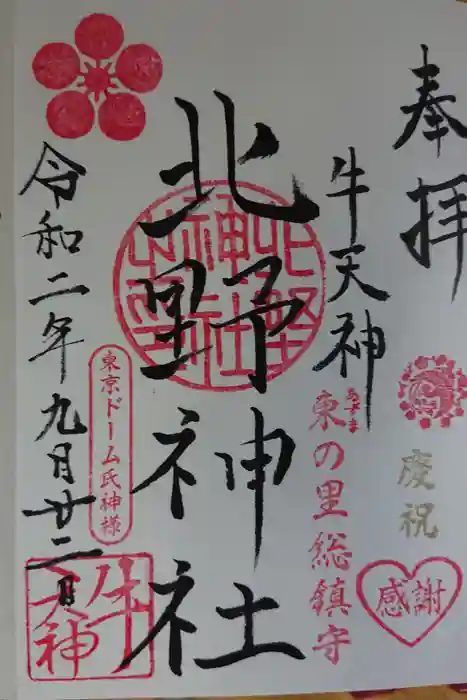 奉拝
慶祝
感謝
牛天神
東の里総鎮守
あずま
北野神社
東京ドーム氏神様
令和二年九月廿二日
牛天神